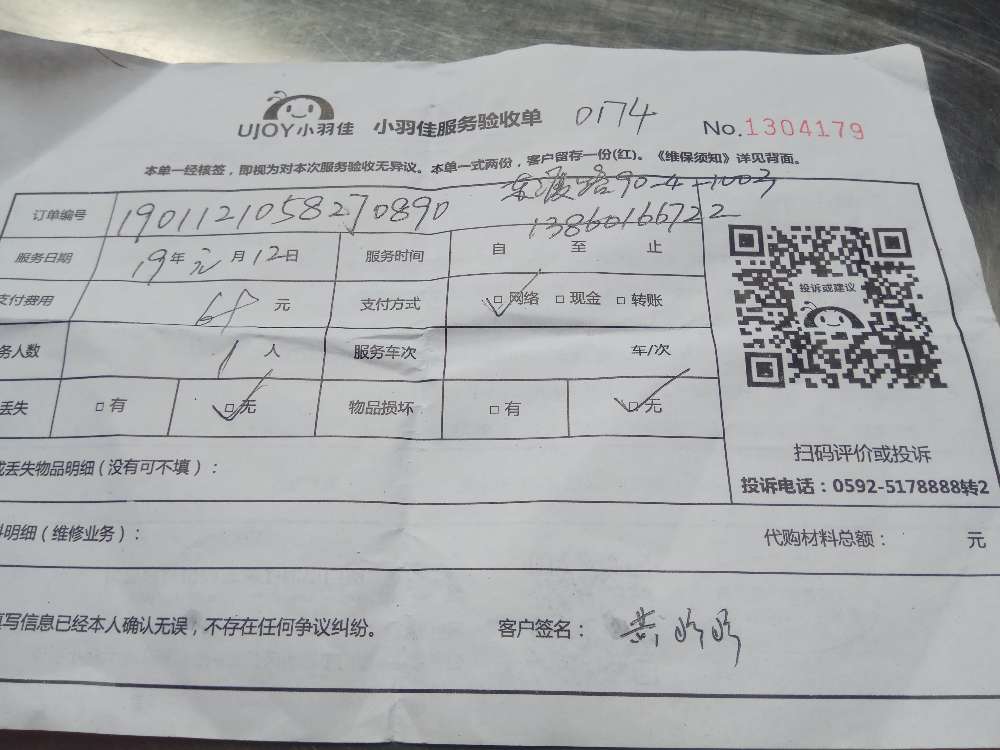 UJOY小羽佳 小羽佳服务验收单 0174 No.1304179
本单一经核签，即视为对本次服务验收无异议。本单一式两份，客户留存一份(红)。《维保须知》详见背面。
路90-4-1003
订单编号 1901121058270890 13860166722
服务日期 19年元月12日 服务时间 自 至 止
支付费用 元 支付方式 □网络 □现金 □转账
务人数 1人 服务车次 车/次
丢失 □有 □无 物品损坏 □有 □无
投诉或建议
扫码评价或投诉
投诉电话：0592-5178888转2
或丢失物品明细（没有可不填）：
料明细（维修业务）： 代购材料总额： 元
填写信息已经本人确认无误，不存在任何争议纠纷。 客户签名：黄